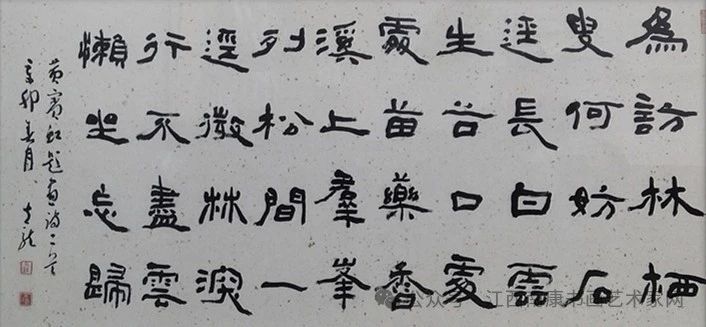 為訪林栖
叟何妨石
逕長白雲
生谷口處
處苗藥香
溪上羣峯
列松間一
逕微林深
行不盡雲
懶坐忘歸
黃賓虹題畫詩二首
辛卯春月
公众号 · 江西南康书画艺术家网